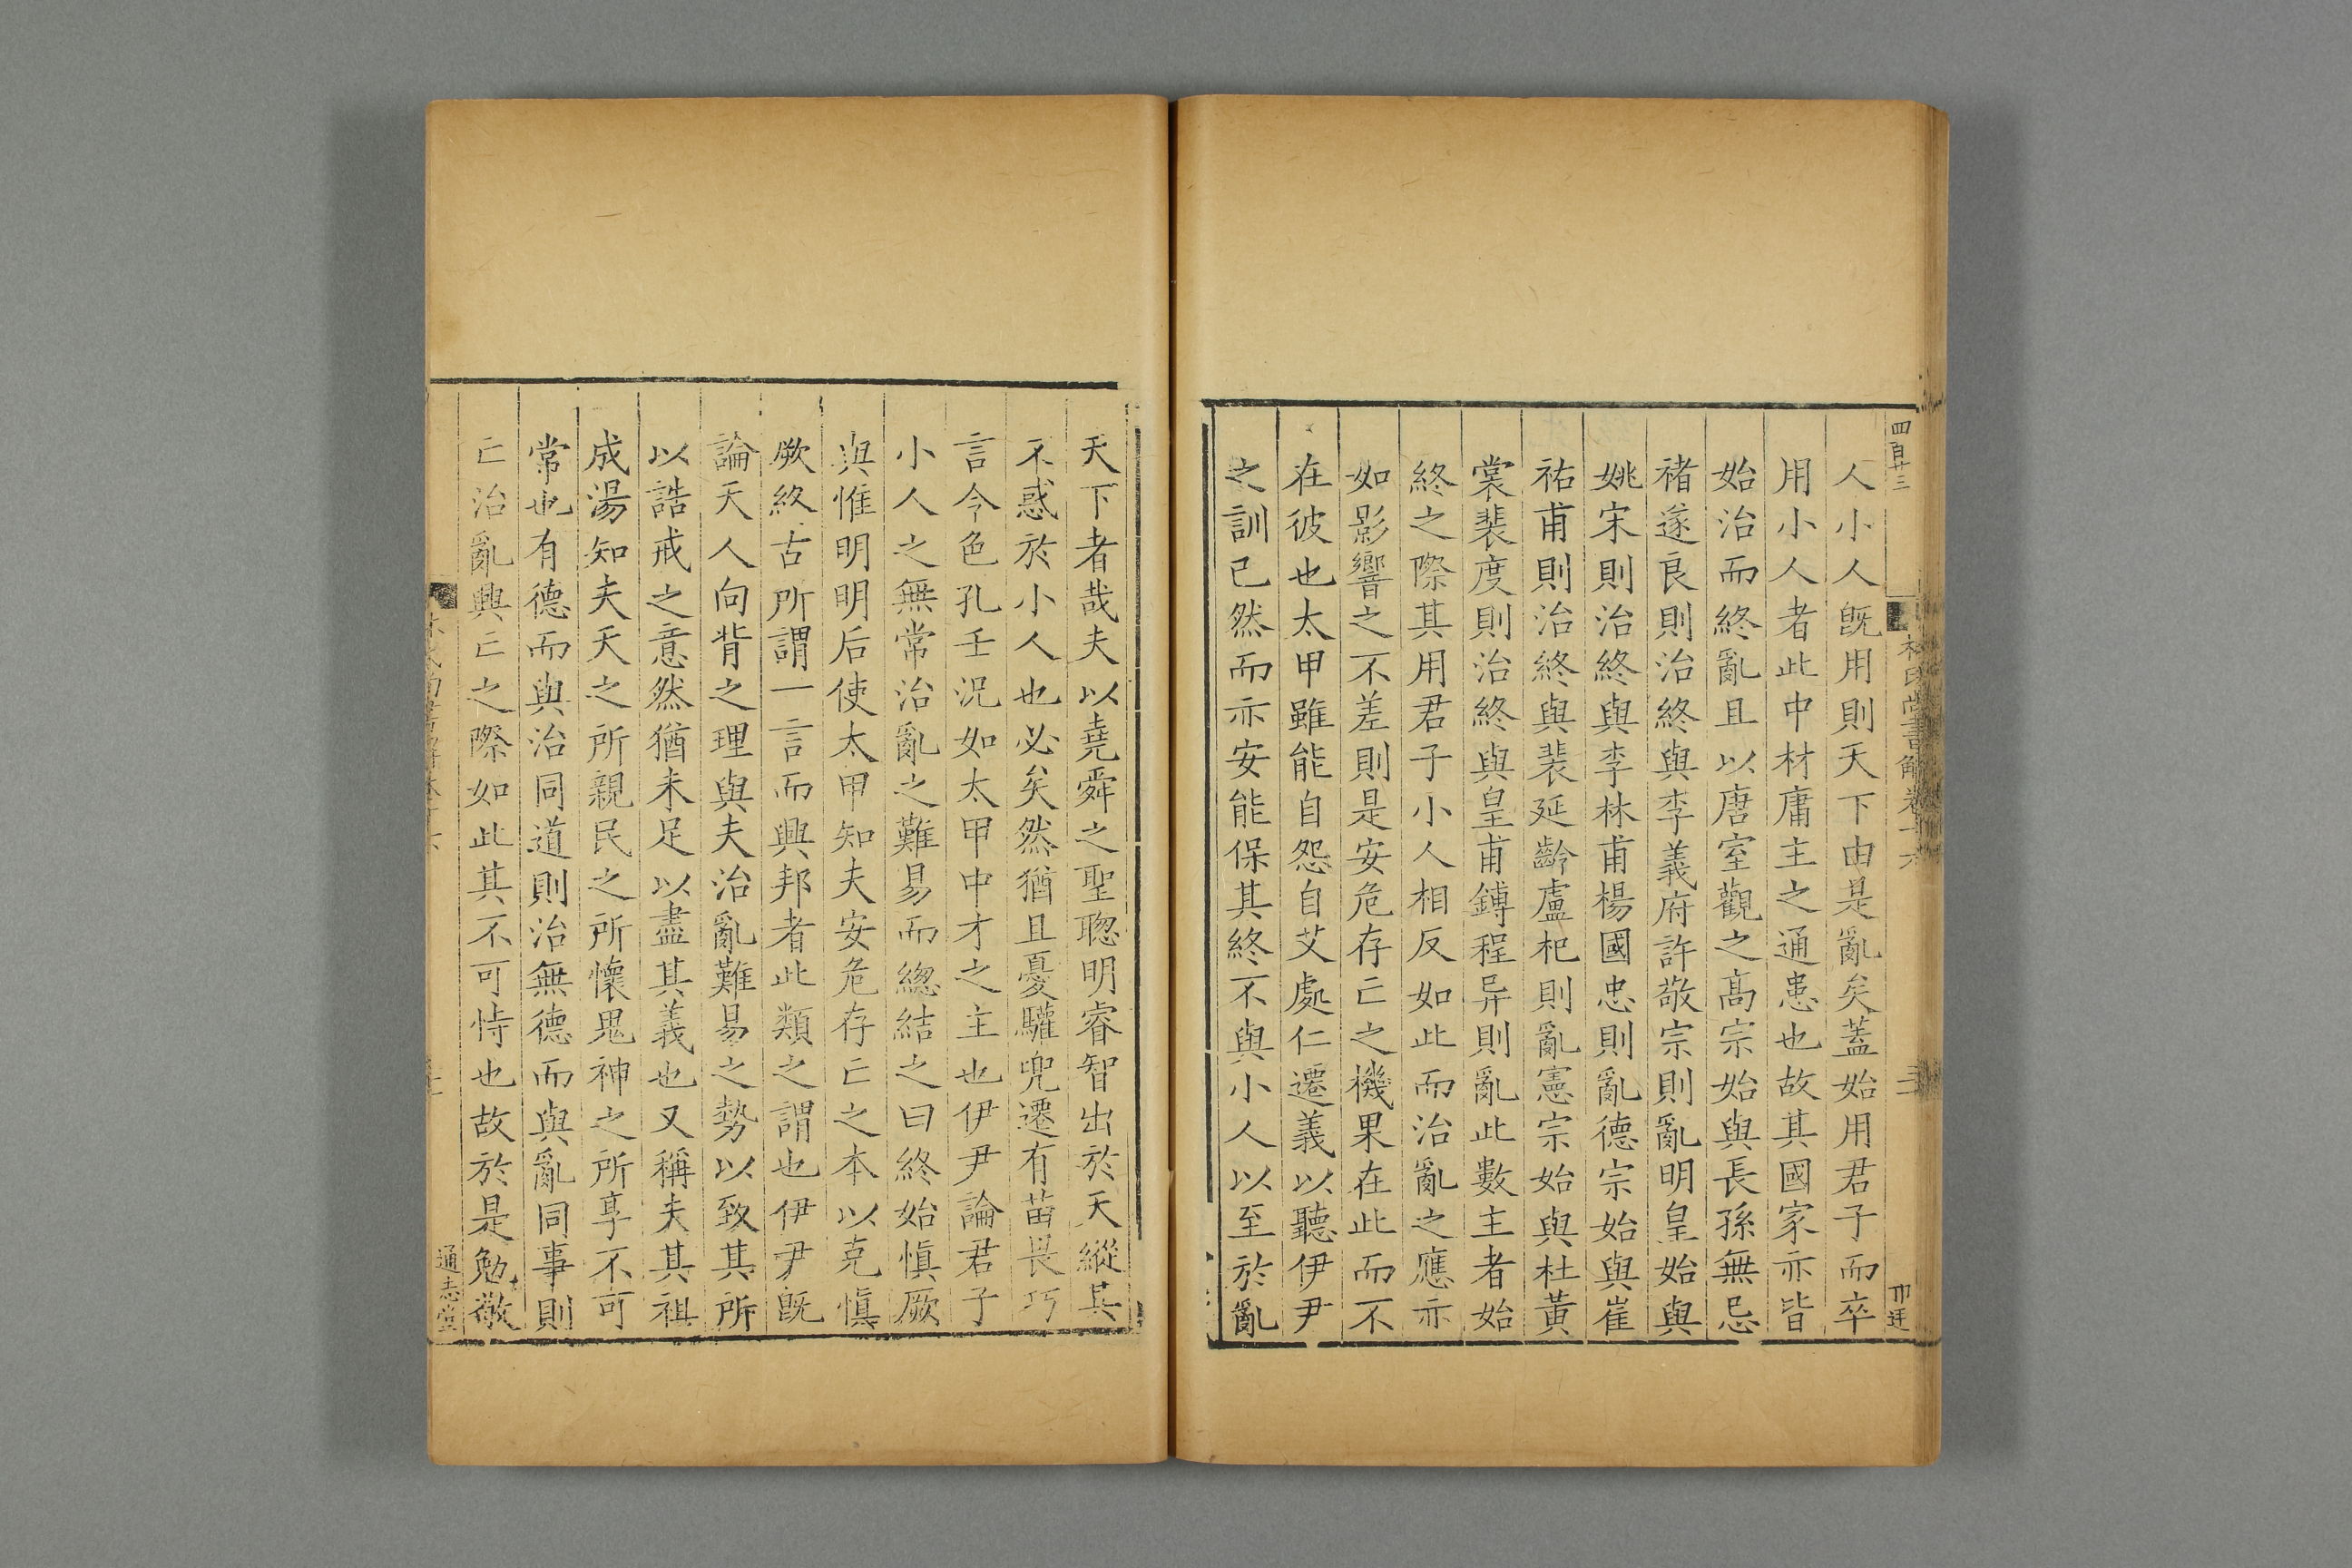 四百廿三
林氏尚書解卷十六
二
人小人旣用則天下由是亂矣蓋始用君子而卒
用小人者此中材庸主之通患也故其國家亦皆
始治而終亂且以唐室觀之高宗始與長孫無忌
褚遂良則治終與李義府許敬宗則亂明皇始與
姚宋則治終與李林甫楊國忠則亂德宗始與崔
祐甫則治終與裴延齡盧杞則亂憲宗始與杜黃
裳裴度則治終與皇甫鎛程异則亂此數主者始
終之際其用君子小人相反如此而治亂之應亦
如影響之不差則是安危存亡之機果在此而不
在彼也太甲雖能自怨自艾處仁遷義以聽伊尹
之訓已然而亦安能保其終不與小人以至於亂
天下者哉夫以堯舜之聖聦明睿智出於天縱其
不惑於小人也必矣然猶且憂驩兜遷有苗畏巧
言令色孔壬況如太甲中才之主也伊尹論君子
小人之無常治亂之難易而緫結之曰終始愼厥
與惟明明后使太甲知夫安危存亡之本以克愼
厥終古所謂一言而興邦者此類之謂也伊尹旣
論天人向背之理與夫治亂難易之勢以致其所
以誥戒之意然猶未足以盡其義也又稱夫其祖
成湯知夫天之所親民之所懷鬼神之所享不可
常也有德而與治同道則治無德而與亂同事則
亡治亂興亡之際如此其不可恃也故於是勉敬
通志堂